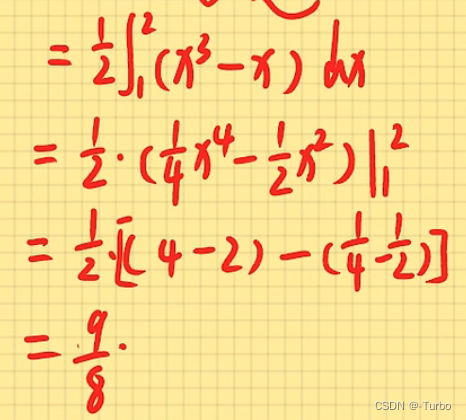 = 1/2 ∫₁² (x³ − x) dx
= 1/2 · (1/4 x⁴ − 1/2 x²) |₁²
= 1/2 · [(4 − 2) − (1/4 − 1/2)]
= 9/8 .
CSDN @-Turbo